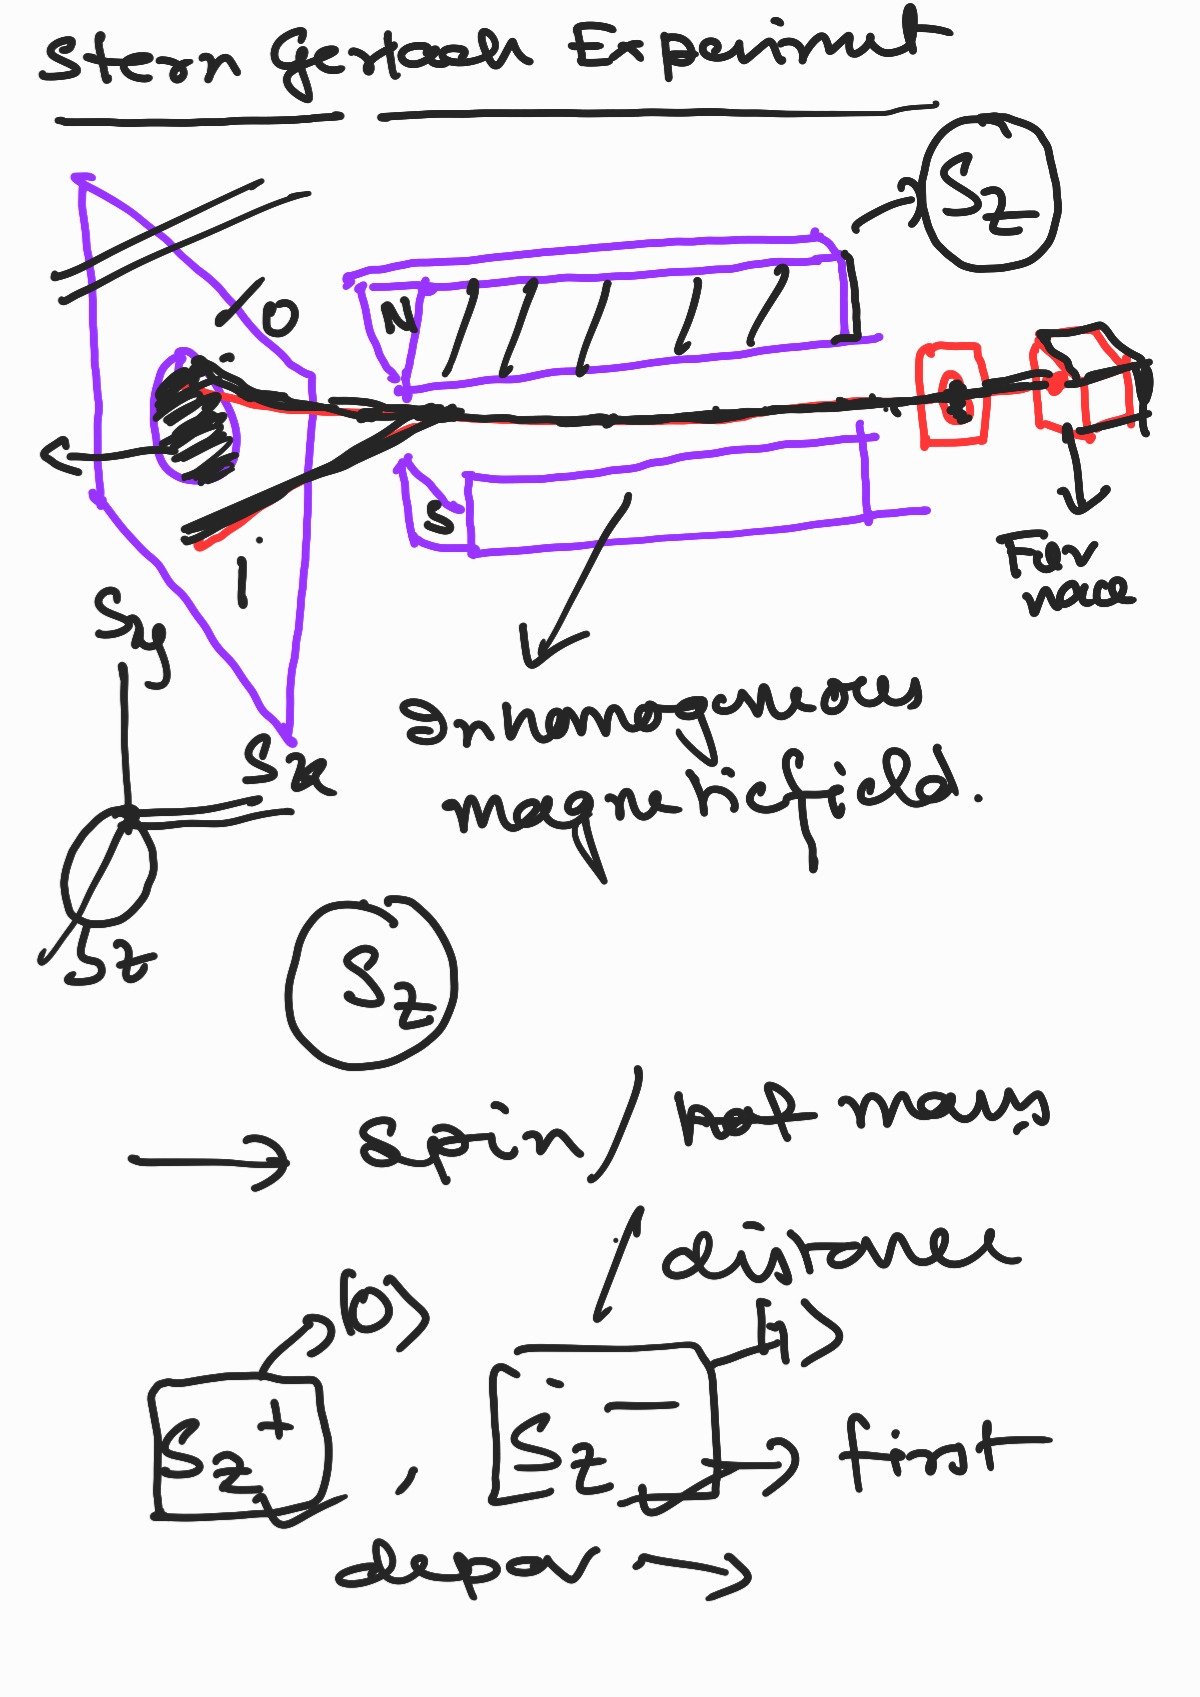 Stern Gerlach Experiment
Sz
N
0
S
1
Fur
nace
Sy
Inhomogeneous
magneticfield.
Sx
Sz
Sz
→ Spin / not mass,
/ distance
|0>
|1>
Sz+ , Sz- → first
→